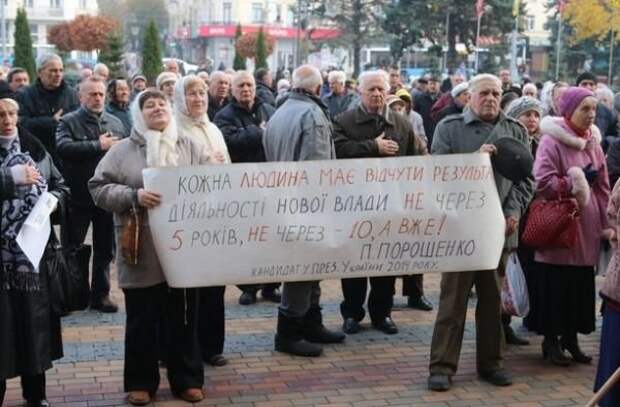 КОЖНА ЛЮДИНА МАЄ ВІДЧУТИ РЕЗУЛЬТА
ДІЯЛЬНОСТІ НОВОЇ ВЛАДИ НЕ ЧЕРЕЗ
5 РОКІВ, НЕ ЧЕРЕЗ - 10, А ВЖЕ!
П. ПОРОШЕНКО
КАНДИДАТ У ПРЕЗ. УКРАЇНИ 2014 РОКУ.